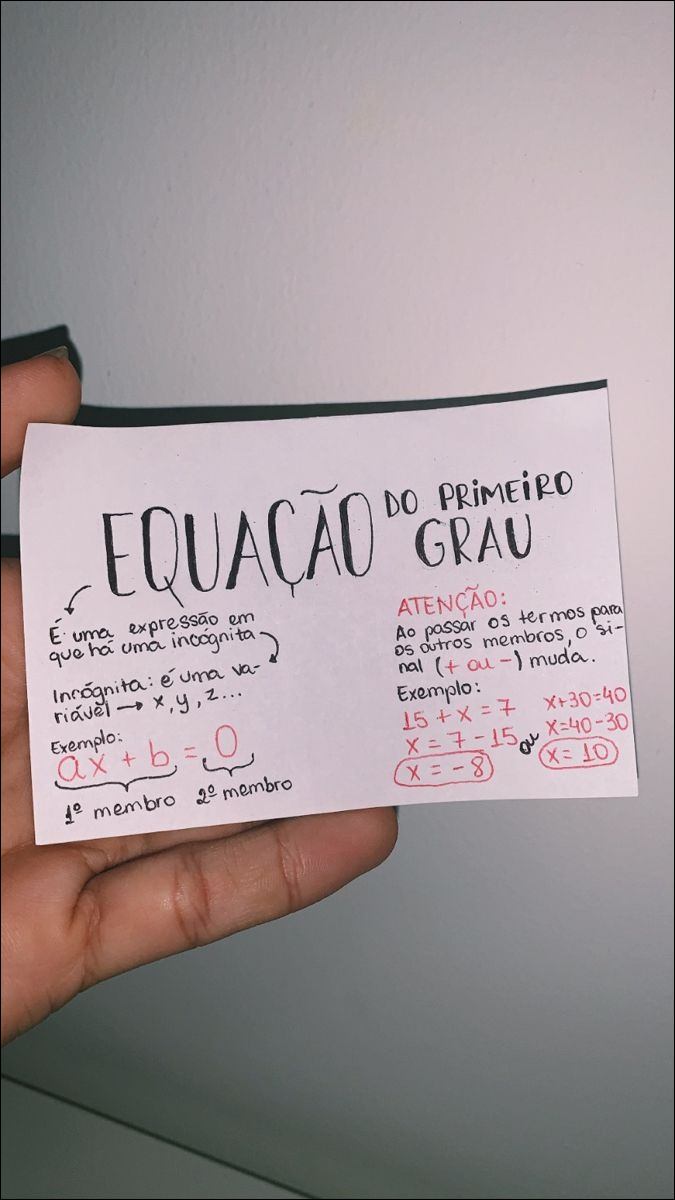 EQUAÇÃO DO PRIMEIRO
GRAU
É uma expressão em
que há uma incógnita
Incógnita: é uma va-
riável → x, y, z...
Exemplo:
ax + b = 0
1º membro 2º membro
ATENÇÃO:
Ao passar os termos para
os outros membros, o si-
nal (+ ou -) muda.
Exemplo:
15 + x = 7
x = 7 - 15
x = -8
ou
x+30=40
x=40-30
x= 10